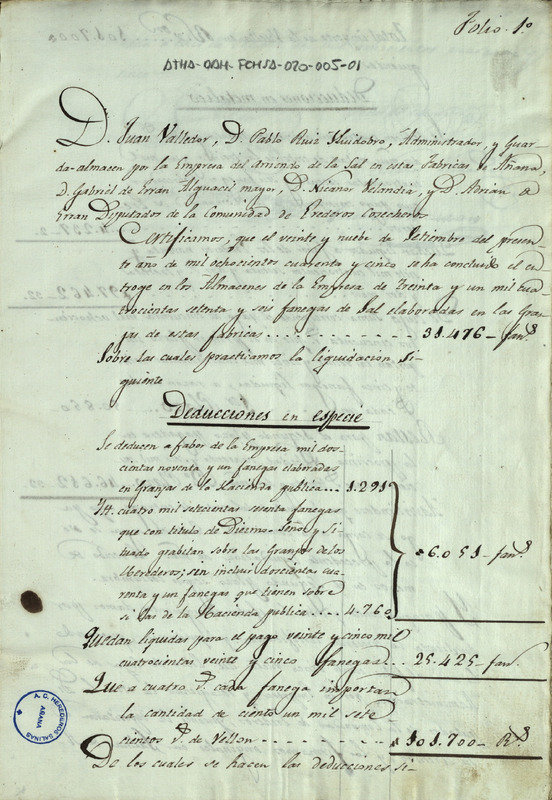 Folio. 1º
ATHA-DAH-FCHSA-020-005-01
D. Juan Valledor, D. Pablo Ruiz Huidobro, Administrador, y Guar-
da-almacen por la Empresa del arriendo de la Sal en estas Fabricas de Añana,
D. Gabriel de Erran Alguacil mayor, D. Nicanor Velandia, y D. Adrian de
Erran Diputados de la Comunidad de Erederos Cosecheros
Certificamos, que el veinte y nuebe de Setiembre del presen-
te año de mil ochocientos cuarenta y cinco se ha concluido el en-
troge en los Almacenes de la Empresa de Treinta y un mil cua-
trocientas setenta y seis fanegas de Sal elaboradas en las Gran-
jas de estas fabricas . . . . . . . . . . . . . 31.476 - fan.s
Sobre las cuales practicamos la liquidacion si-
guiente
Deducciones en especie
Se deducen a fabor de la Empresa mil dos-
cientas noventa y un fanegas elaboradas
en Granjas de la Hacienda publica... 1.291
Itt. cuatro mil setecientas sesenta fanegas
que con titulo de Diezmo-Seno, y Si-
tuado grabitan sobre las Granjas de los
Herederos; sin incluir doscientas cua-
renta y un fanegas que tienen sobre
si las de la Hacienda publica.... 4.760
6.051 - fan.s
Quedan liquidas para el pago veinte y cinco mil
cuatrocientas veinte y cinco fanegas... 25.425 - fan.s
Que a cuatro r.s cada fanega importan
la cantidad de ciento un mil sete
cientos r.s de Vellon - - - - - - - - - 101.700 - R.s
De los cuales se hacen las deducciones si-
A. C. HEREDEROS SALINAS
AÑANA